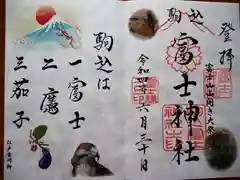 登拝
駒込
富士神社
令和四年六月三十日
駒込は
一富士
二鷹
三茄子
江戸古川柳